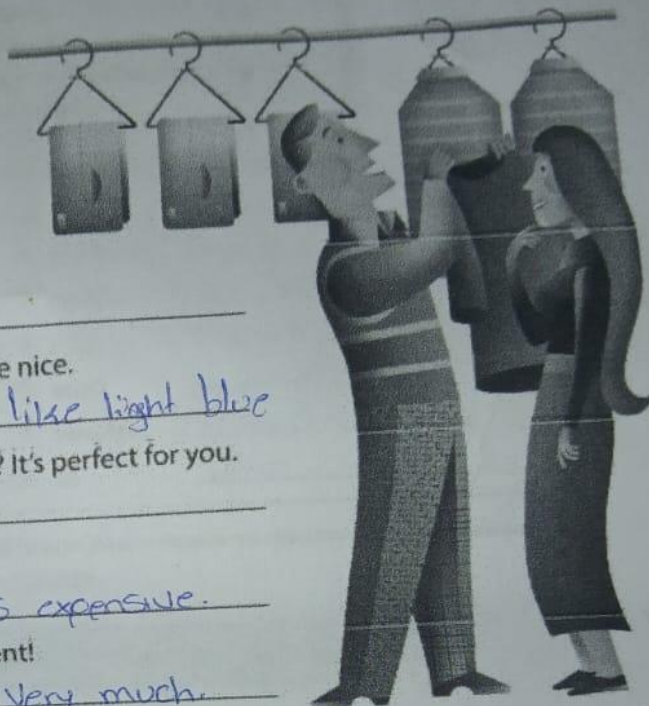 e nice.
like light blue
? It's perfect for you.
s expensive.
nt!
very much.